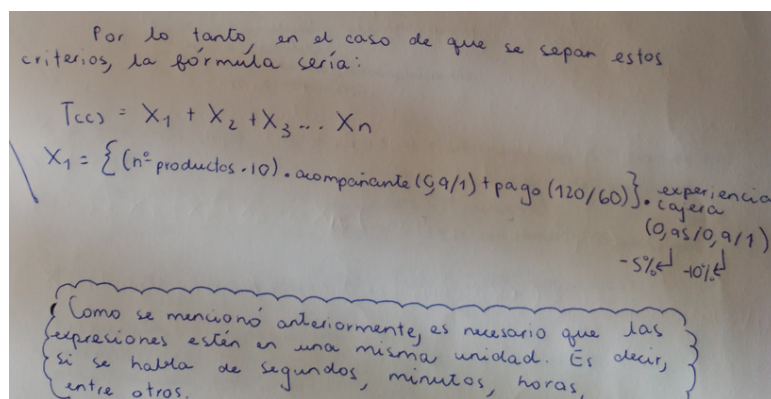 Por lo tanto, en el caso de que se sepan estos
criterios, la fórmula sería:
T(c) = X1 + X2 + X3 ... Xn
X1 = {(nº productos · 10) · acompañante (0,9/1) + pago (120/60)} · experiencia
cajera
(0,95/0,9/1)
-5% -10%
Como se mencionó anteriormente, es necesario que las
expresiones estén en una misma unidad. Es decir,
si se habla de segundos, minutos, horas,
entre otros.